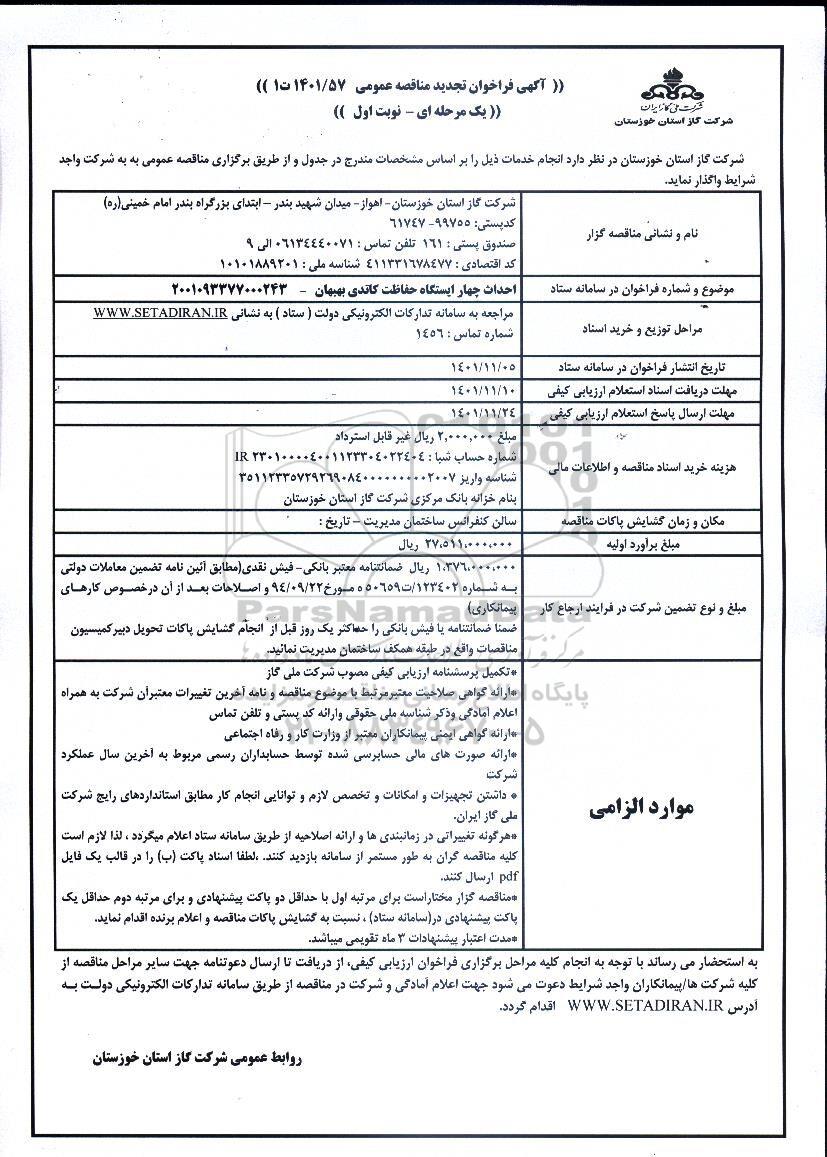 (( آگهی فراخوان تجدید مناقصه عمومی ۱۴۰۱/۵۷ ت۱ ))
(( یک مرحله ای - نوبت اول ))
شرکت ملی گاز ایران
شرکت گاز استان خوزستان
شرکت گاز استان خوزستان در نظر دارد انجام خدمات ذیل را بر اساس مشخصات مندرج در جدول و از طریق برگزاری مناقصه عمومی به به شرکت واجد
شرایط واگذار نماید.
نام و نشانی مناقصه گزار
شرکت گاز استان خوزستان- اهواز- میدان شهید بندر – ابتدای بزرگراه بندر امام خمینی(ره)
کدپستی: ۹۹۷۵۵- ۶۱۷۴۷
صندوق پستی : ۱۶۱ تلفن تماس : ۰۶۱۳۴۴۴۰۰۷۱ الی ۹
کد اقتصادی : ۴۱۱۳۳۱۶۷۸۴۷۷ شناسه ملی : ۱۰۱۰۱۸۸۹۲۰۱
موضوع و شماره فراخوان در سامانه ستاد
احداث چهار ایستگاه حفاظت کاتدی بهبهان - ۲۰۰۱۰۹۳۳۷۷۰۰۰۲۴۳
مراحل توزیع و خرید اسناد
مراجعه به سامانه تدارکات الکترونیکی دولت ( ستاد ) به نشانی WWW.SETADIRAN.IR
شماره تماس : ۱۴۵۶
تاریخ انتشار فراخوان در سامانه ستاد
۱۴۰۱/۱۱/۰۵
مهلت دریافت اسناد استعلام ارزیابی کیفی
۱۴۰۱/۱۱/۱۰
مهلت ارسال پاسخ استعلام ارزیابی کیفی
۱۴۰۱/۱۱/۲۴
هزینه خرید اسناد مناقصه و اطلاعات مالی
مبلغ ۲,۰۰۰,۰۰۰ ریال غیر قابل استرداد
شماره حساب شبا : IR ۲۳۰۱۰۰۰۰۴۰۰۱۱۲۳۳۰۴۰۲۲۴۰۴
شناسه واریز ۳۵۱۱۲۳۳۵۷۲۹۲۶۹۰۸۴۰۰۰۰۰۰۰۰۰۲۰۰۷
بنام خزانه بانک مرکزی شرکت گاز استان خوزستان
مکان و زمان گشایش پاکات مناقصه
سالن کنفرانس ساختمان مدیریت – تاریخ :
مبلغ برآورد اولیه
۲۷،۵۱۱,۰۰۰,۰۰۰ ریال
مبلغ و نوع تضمین شرکت در فرایند ارجاع کار
۱،۳۷۶,۰۰۰,۰۰۰ ریال ضمانتنامه معتبر بانکی- فیش نقدی(مطابق آئین نامه تضمین معاملات دولتی
به شماره ۱۲۳۴۰۲/ت۵۰۶۵۹ ه مورخ۹۴/۰۹/۲۲ و اصلاحات بعد از آن درخصوص کارهای
پیمانکاری)
ضمنا ضمانتنامه یا فیش بانکی را حداکثر یک روز قبل از انجام گشایش پاکات تحویل دبیرکمیسیون
مناقصات واقع در طبقه همکف ساختمان مدیریت نمائید.
موارد الزامی
*تکمیل پرسشنامه ارزیابی کیفی مصوب شرکت ملی گاز
*ارائه گواهی صلاحیت معتبرمرتبط با موضوع مناقصه و نامه آخرین تغییرات معتبرآن شرکت به همراه
اعلام آمادگی وذکر شناسه ملی حقوقی وارائه کد پستی و تلفن تماس
*ارائه گواهی ایمنی پیمانکاران معتبر از وزارت کار و رفاه اجتماعی
*ارائه صورت های مالی حسابرسی شده توسط حسابداران رسمی مربوط به آخرین سال عملکرد
شرکت
* داشتن تجهیزات و امکانات و تخصص لازم و توانایی انجام کار مطابق استانداردهای رایج شرکت
ملی گاز ایران.
*هرگونه تغییراتی در زمانبندی ها و ارائه اصلاحیه از طریق سامانه ستاد اعلام میگردد ، لذا لازم است
کلیه مناقصه گران به طور مستمر از سامانه بازدید کنند. ،لطفا اسناد پاکت (ب) را در قالب یک فایل
pdf ارسال کنند.
*مناقصه گزار مختاراست برای مرتبه اول با حداقل دو پاکت پیشنهادی و برای مرتبه دوم حداقل یک
پاکت پیشنهادی در(سامانه ستاد) ، نسبت به گشایش پاکات مناقصه و اعلام برنده اقدام نماید.
*مدت اعتبار پیشنهادات ۳ ماه تقویمی میباشد.
به استحضار می رساند با توجه به انجام کلیه مراحل برگزاری فراخوان ارزیابی کیفی، از دریافت تا ارسال دعوتنامه جهت سایر مراحل مناقصه از
کلیه شرکت ها/پیمانکاران واجد شرایط دعوت می شود جهت اعلام آمادگی و شرکت در مناقصه از طریق سامانه تدارکات الکترونیکی دولت به
آدرس WWW.SETADIRAN.IR اقدام گردد.
روابط عمومی شرکت گاز استان خوزستان